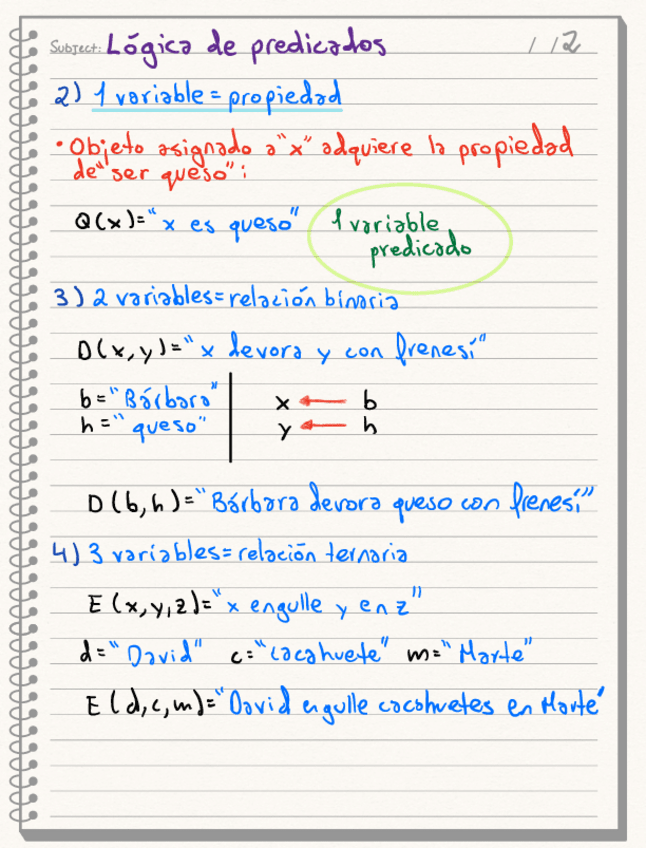 Subject: Lógica de predicados / /2
2) 1 variable = propiedad
• Objeto asignado a "x" adquiere la propiedad
de "ser queso":
Q(x)= "x es queso"
1 variable
predicado
3) 2 variables = relación binaria
D(x,y)= "x devora y con frenesí"
b= "Bárbara"
h= "queso"
x ← b
y ← h
D(b,h)= "Bárbara devora queso con frenesí"
4) 3 variables = relación ternaria
E(x,y,z)= "x engulle y en z"
d= "David" c= "cacahuete" m= "Marte"
E(d,c,m)= "David engulle cacahuetes en Marte"